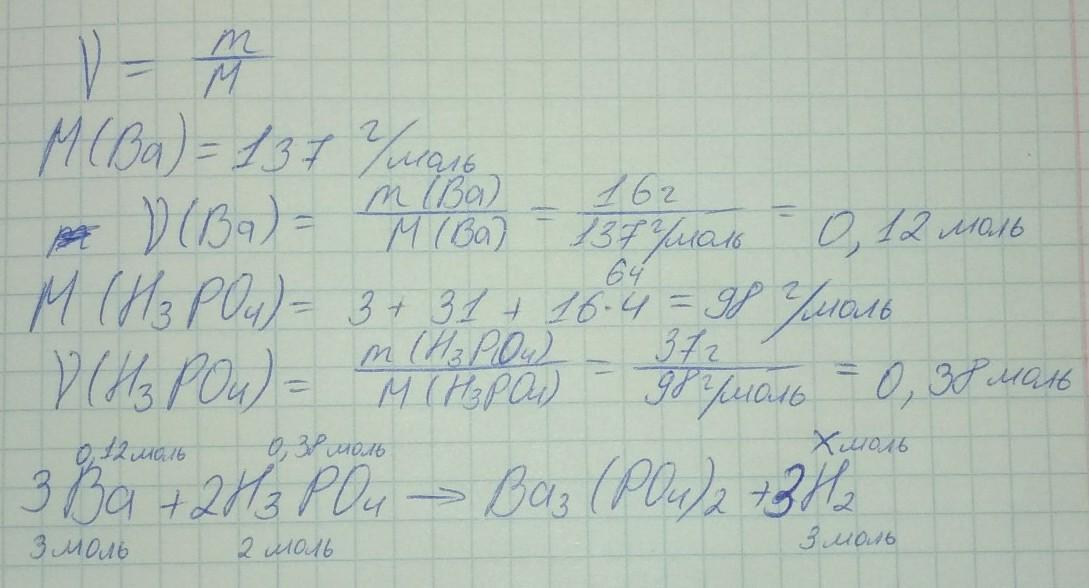 V = m/M
M(Ba) = 137 г/моль
V(Ba) = m(Ba)/M(Ba) = 16г/137г/моль = 0,12 моль
64
M(H₃PO₄) = 3 + 31 + 16·4 = 98 г/моль
V(H₃PO₄) = m(H₃PO₄)/M(H₃PO₄) = 37г/98г/моль = 0,38 моль
0,12 моль 0,38 моль X моль
3Ba + 2H₃PO₄ → Ba₃(PO₄)₂ + 3H₂
3 моль 2 моль 3 моль